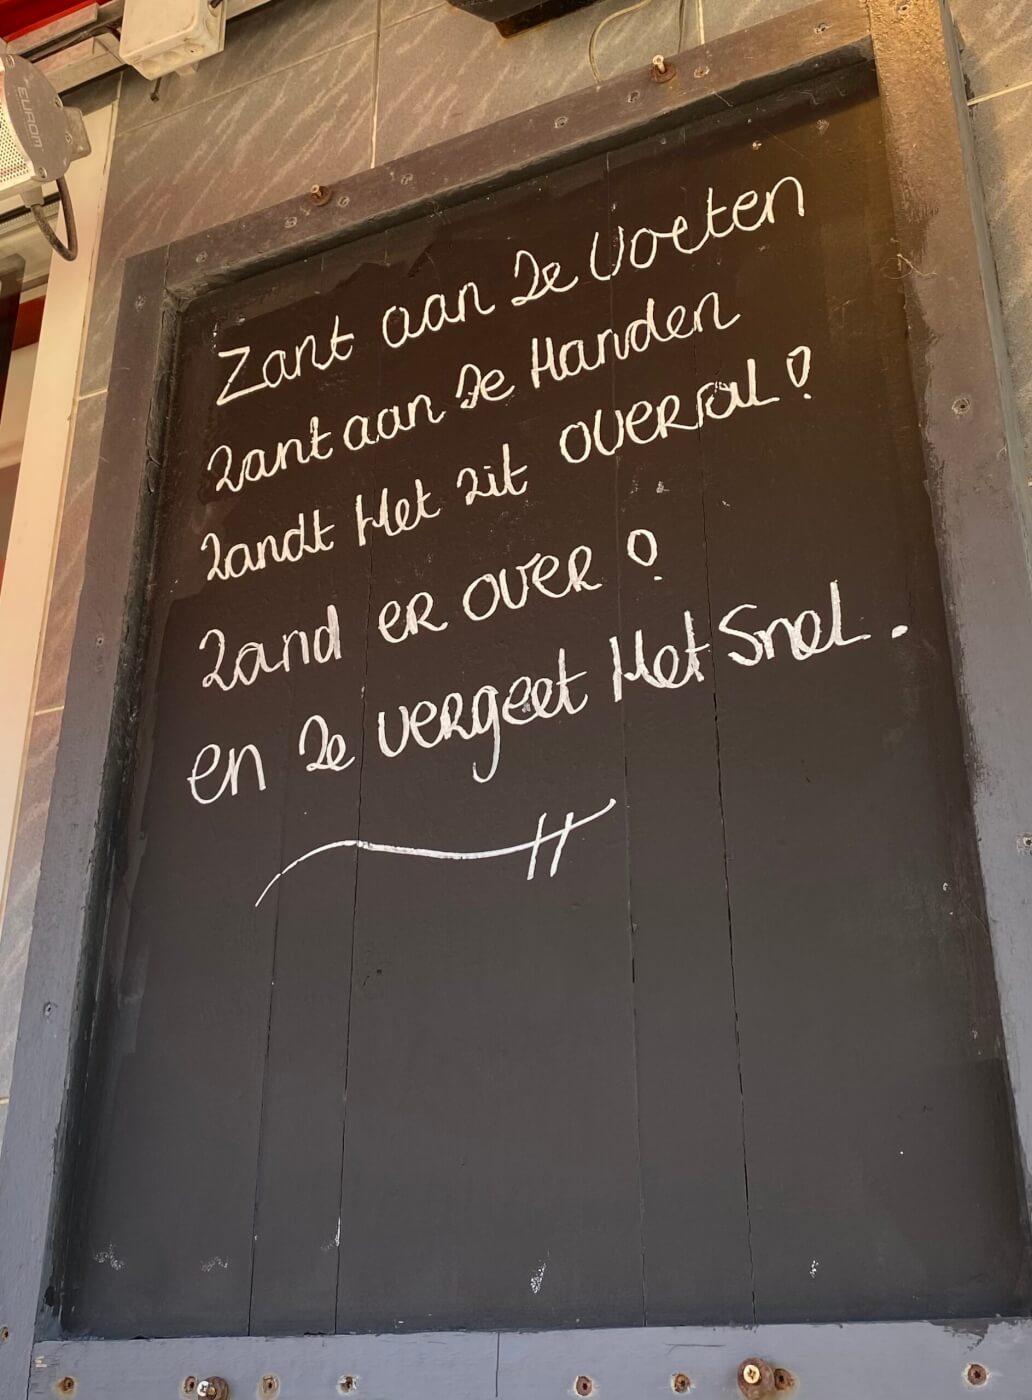 EUROM
Zant aan De Voeten
Zant aan De Handen
Zandt Het zit OVERAL!
Zand er over!
en Ze vergeet Het Snel.